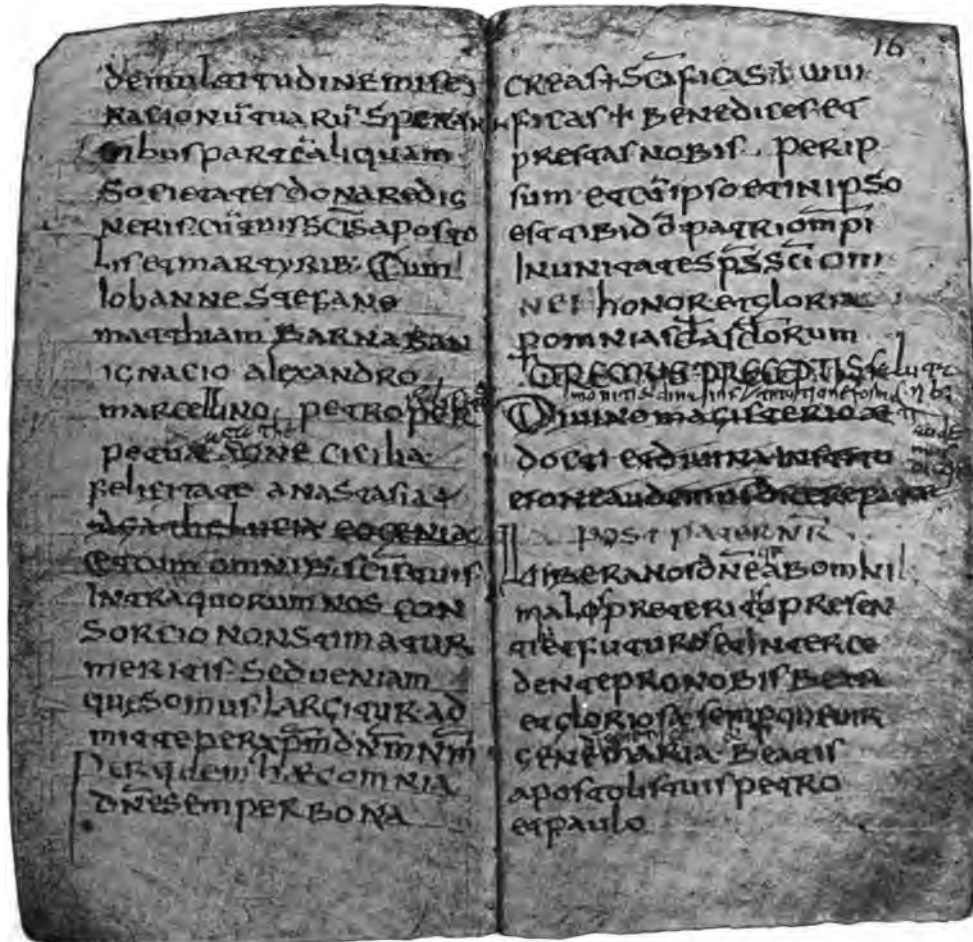 de multitudine mise
rationū tuarū speran
tibus partē aliquam
societates donare dig
neris cū tuis scīs aposto
lis et martyrib: Cum
Iohanne stefano
matthiam barnaban
ignacio alexandro
marcellino petro per
petuæ agne cicilia
felicitate anastasia
agathe lucia eogenia
et cum omnib: scīs tuis
Intra quorum nos con
sorcio non stimatur
meritis sed veniam
quesomus largitur ad
mitte per xp̄m dn̄m nm̄
per quem hæc omnia
dn̄e semper bona
16
creas + scīficas + uiui
ficas + benedices et
prestas nobis per ip
sum et cū ipso et in ipso
est tibi dō patri om̄pi
In unitate sp̄s scī om
nes honor et gloria
p omnia scla sclorum
OREMUS PRECEPTIS
Divino magisterio
docti et divina institu
tione audemus dicere pater
post pater nr̄
Libera nos dn̄e ab omni
malo preterito presen
ti et futuro et interce
dente pro nobis beata
et gloriosa semperque uir
gene maria beatis
apostolis tuis petro
et paulo